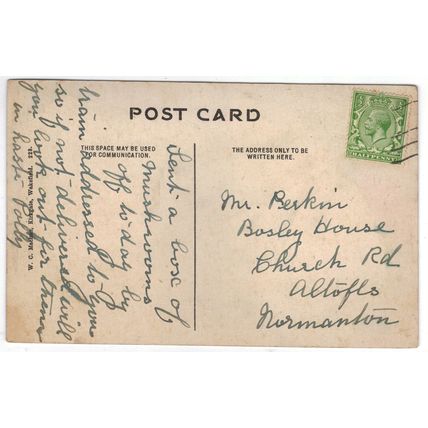 POST CARD
THIS SPACE MAY BE USED
FOR COMMUNICATION.
THE ADDRESS ONLY TO BE
WRITTEN HERE.
Sent a box of
Mushrooms
off to day by
train addressed to you
so if not delivered will
you look out for them
in haste Polly
Mr. Perkin
Bosley House
Church Rd
Altofts
Normanton
HALFPENNY
W. C.
Wakefield.